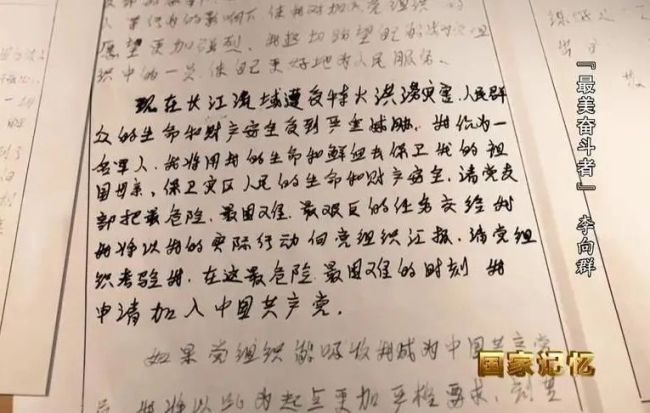 的影响下使我对加入党组织的
愿望更加强烈。我盼望自己能成为党组
织中的一员,使自己更好地为人民服务。
现在长江流域遭受特大洪涝灾害.人民群
众的生命和财产安全受到严重威胁。我作为一
名军人.我将用我的生命和鲜血去保卫我的祖
国母亲、保卫灾区人民的生命和财产安全,请党支
部把最危险、最困难、最艰巨的任务交给我
我将以我的实际行动向党组织汇报,请党组
织考验我,在这最危险、最困难的时刻 我
申请加入中国共产党。
如果党组织能吸收我成为中国共产党
员 我将以此为起点更加严格要求,刻苦
『最美奋斗者』 李向群
国家记忆